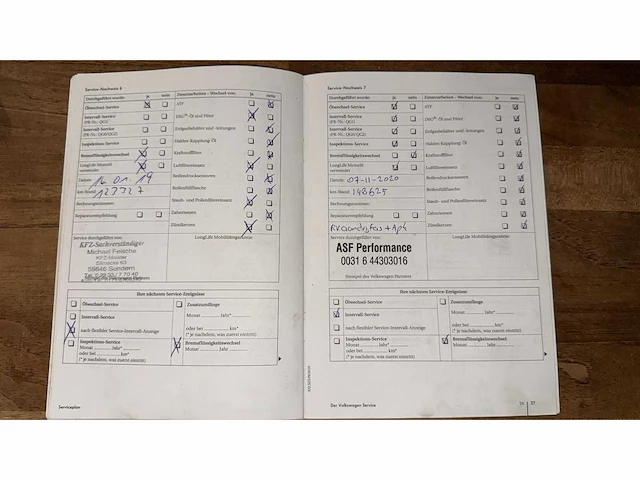 Service-Nachweis 6
Durchgeführt wurde: ja nein Zusatzarbeiten - Wechsel von: ja nein
Ölwechsel-Service ATF
Intervall-Service
(PR-Nr.: QG1) DSG®-Öl und Filter
Intervall-Service
(PR-Nr.: QG0/QG2) Erdgasbehälter und -leitungen
Inspektions-Service Haldex-Kupplung-Öl
Bremsflüssigkeitswechsel Kraftstofffilter
LongLife Motoröl
verwendet Luftfiltereinsatz
Datum: 16 01. 19 Reifendruckssensoren
km-Stand: 123327 Reifenfüllflasche
Rechnungsnummer: Staub- und Pollenfiltereinsatz
Reparaturempfehlung Zahnriemen
Zündkerzen
Service durchgeführt von: LongLife Mobilitätsgarantie:
KFZ-Sachverständiger
Michael Felsche
KFZ-Meister
59846 Sundern
Ihre nächsten Service-Ereignisse
Ölwechsel-Service Zusatzumfänge
Intervall-Service Monat Jahr*
nach flexibler Service-Intervall-Anzeige oder bei km*
(* je nachdem, was zuerst eintritt)
Inspektions-Service Bremsflüssigkeitswechsel
Monat Jahr* Monat Jahr
oder bei km*
(* je nachdem, was zuerst eintritt)
Serviceplan
Service-Nachweis 7
Durchgeführt wurde: ja nein Zusatzarbeiten - Wechsel von: ja nein
Ölwechsel-Service ATF
Intervall-Service
(PR-Nr.: QG1) DSG®-Öl und Filter
Intervall-Service
(PR-Nr.: QG0/QG2) Erdgasbehälter und -leitungen
Inspektions-Service Haldex-Kupplung-Öl
Bremsflüssigkeitswechsel Kraftstofffilter
LongLife Motoröl
verwendet Luftfiltereinsatz
Datum: 07-11-2020 Reifendruckssensoren
km-Stand: 148625 Reifenfüllflasche
Rechnungsnummer: Staub- und Pollenfiltereinsatz
Reparaturempfehlung Zahnriemen
Zündkerzen
Service durchgeführt von: LongLife Mobilitätsgarantie:
ASF Performance
0031 6 44303016
Stempel des Volkswagen Partners
Ihre nächsten Service-Ereignisse
Ölwechsel-Service Zusatzumfänge
Intervall-Service Monat Jahr*
nach flexibler Service-Intervall-Anzeige oder bei km*
(* je nachdem, was zuerst eintritt)
Inspektions-Service Bremsflüssigkeitswechsel
Monat Jahr* Monat Jahr
oder bei km*
(* je nachdem, was zuerst eintritt)
Der Volkswagen Service 26 27